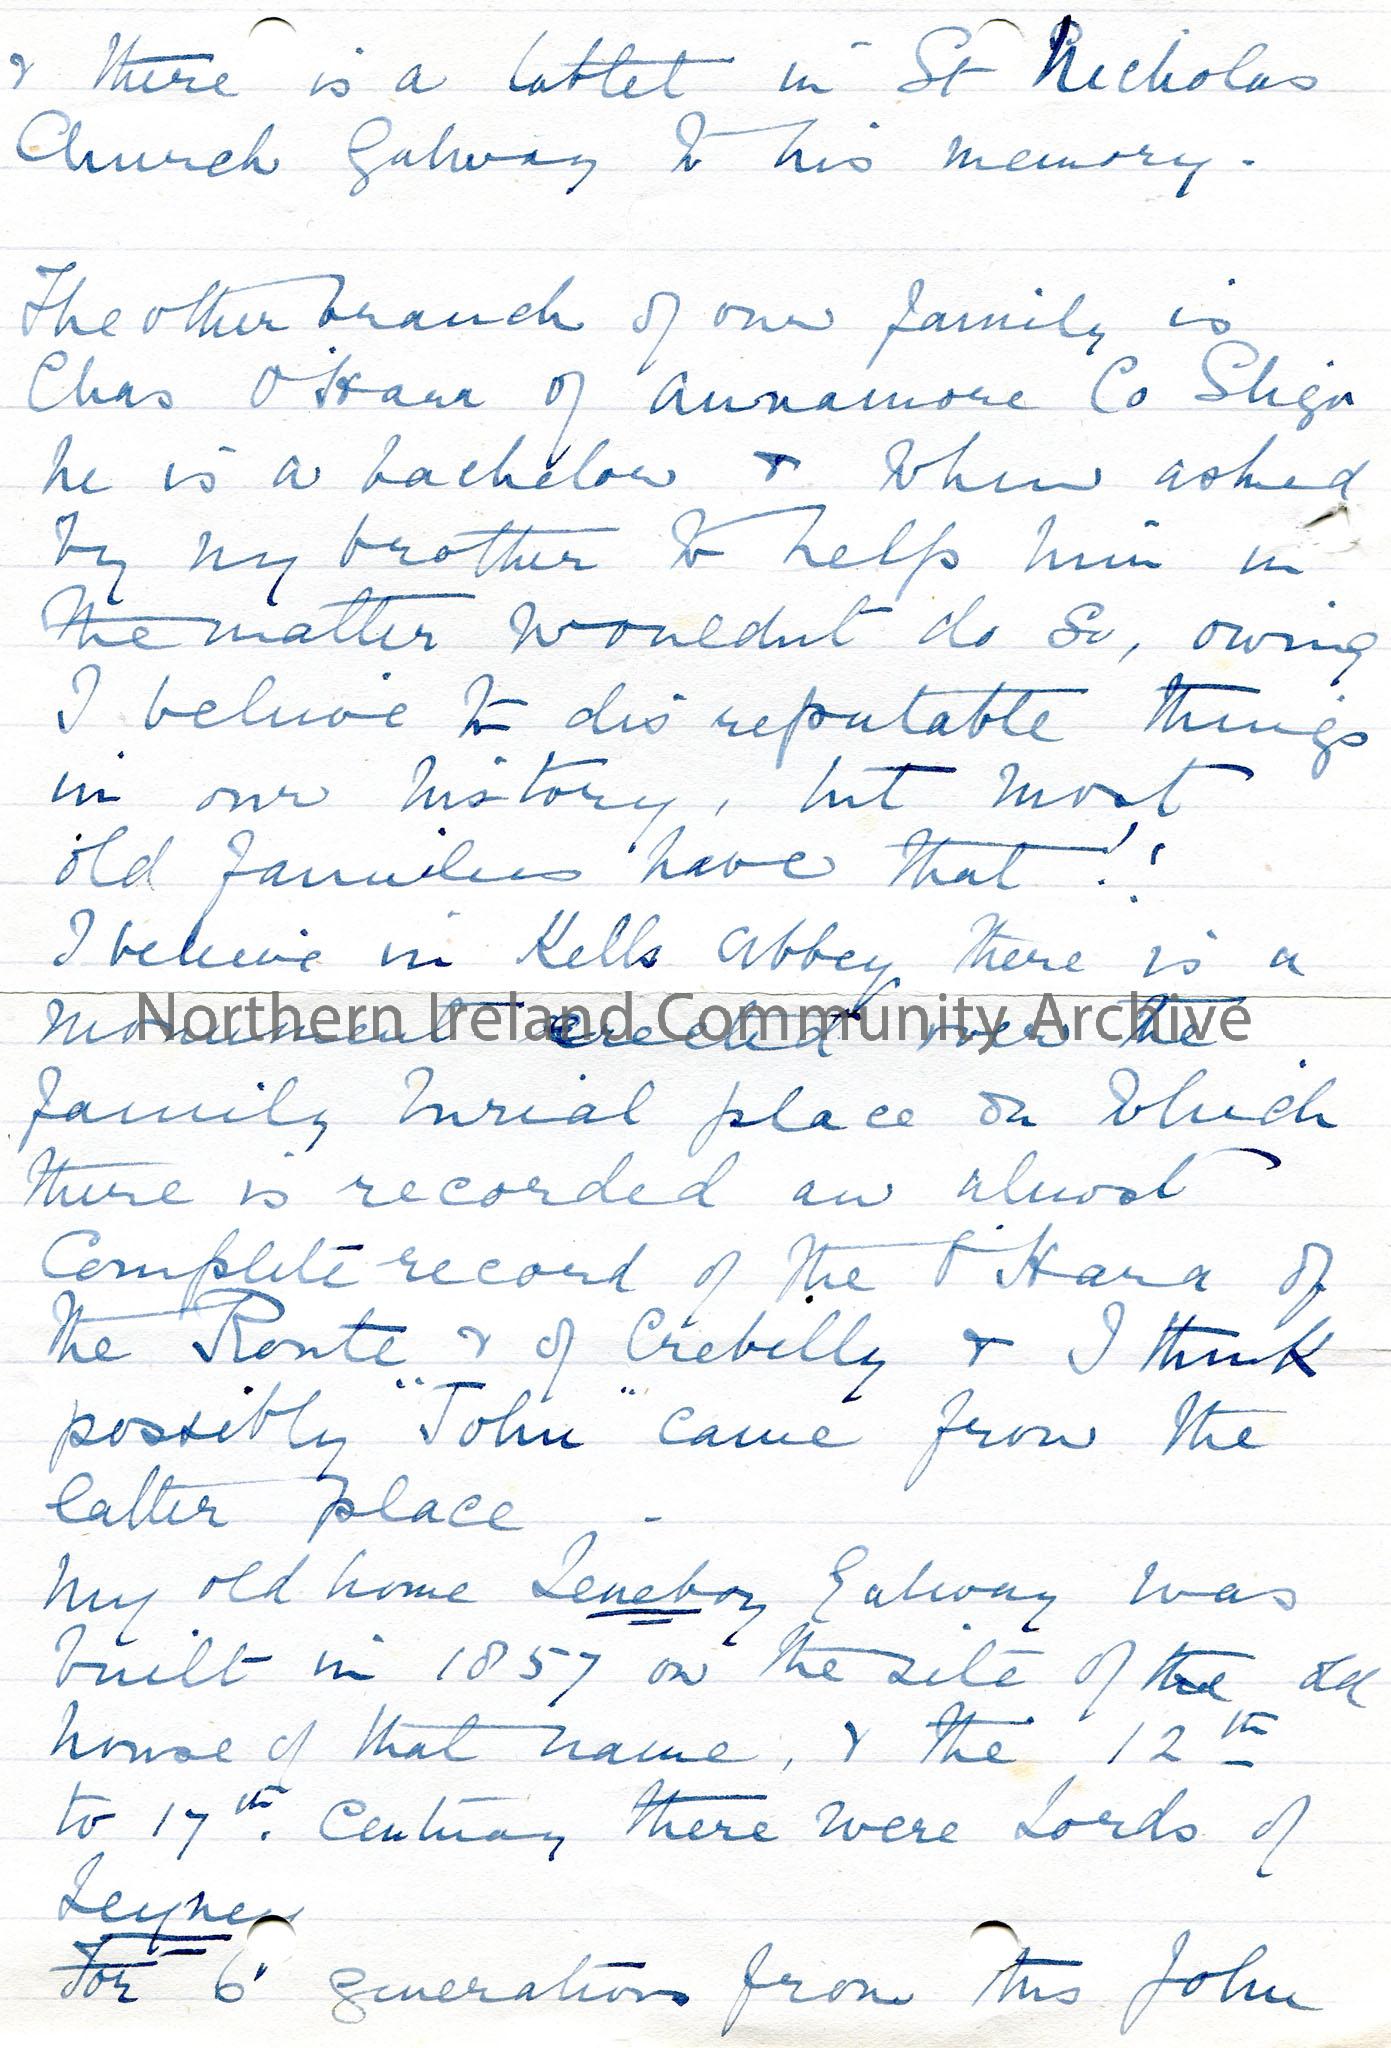 & there is a tablet in St Nicholas
Church Galway to his memory.
The other branch of our family is
Chas O'Hara of Annamore Co Sligo
he is a bachelor & when asked
by my brother to help him in
the matter wouldnt do so, owing
I believe to dis reputable things
in our history, but most
old families have that!!
I believe in Kells Abbey there is a
monument erected over the
Northern Ireland Community Archive
family burial place on which
there is recorded an almost
Complete record of the O'Hara of
the Route & of Crebilly & I think
possibly "John" came from the
latter place -
My old home Leneboy Galway was
built in 1857 on the site of the old
house of that name, & the 12th
to 17th. Century there were Lords of
Leyney
For 6 generations from this John